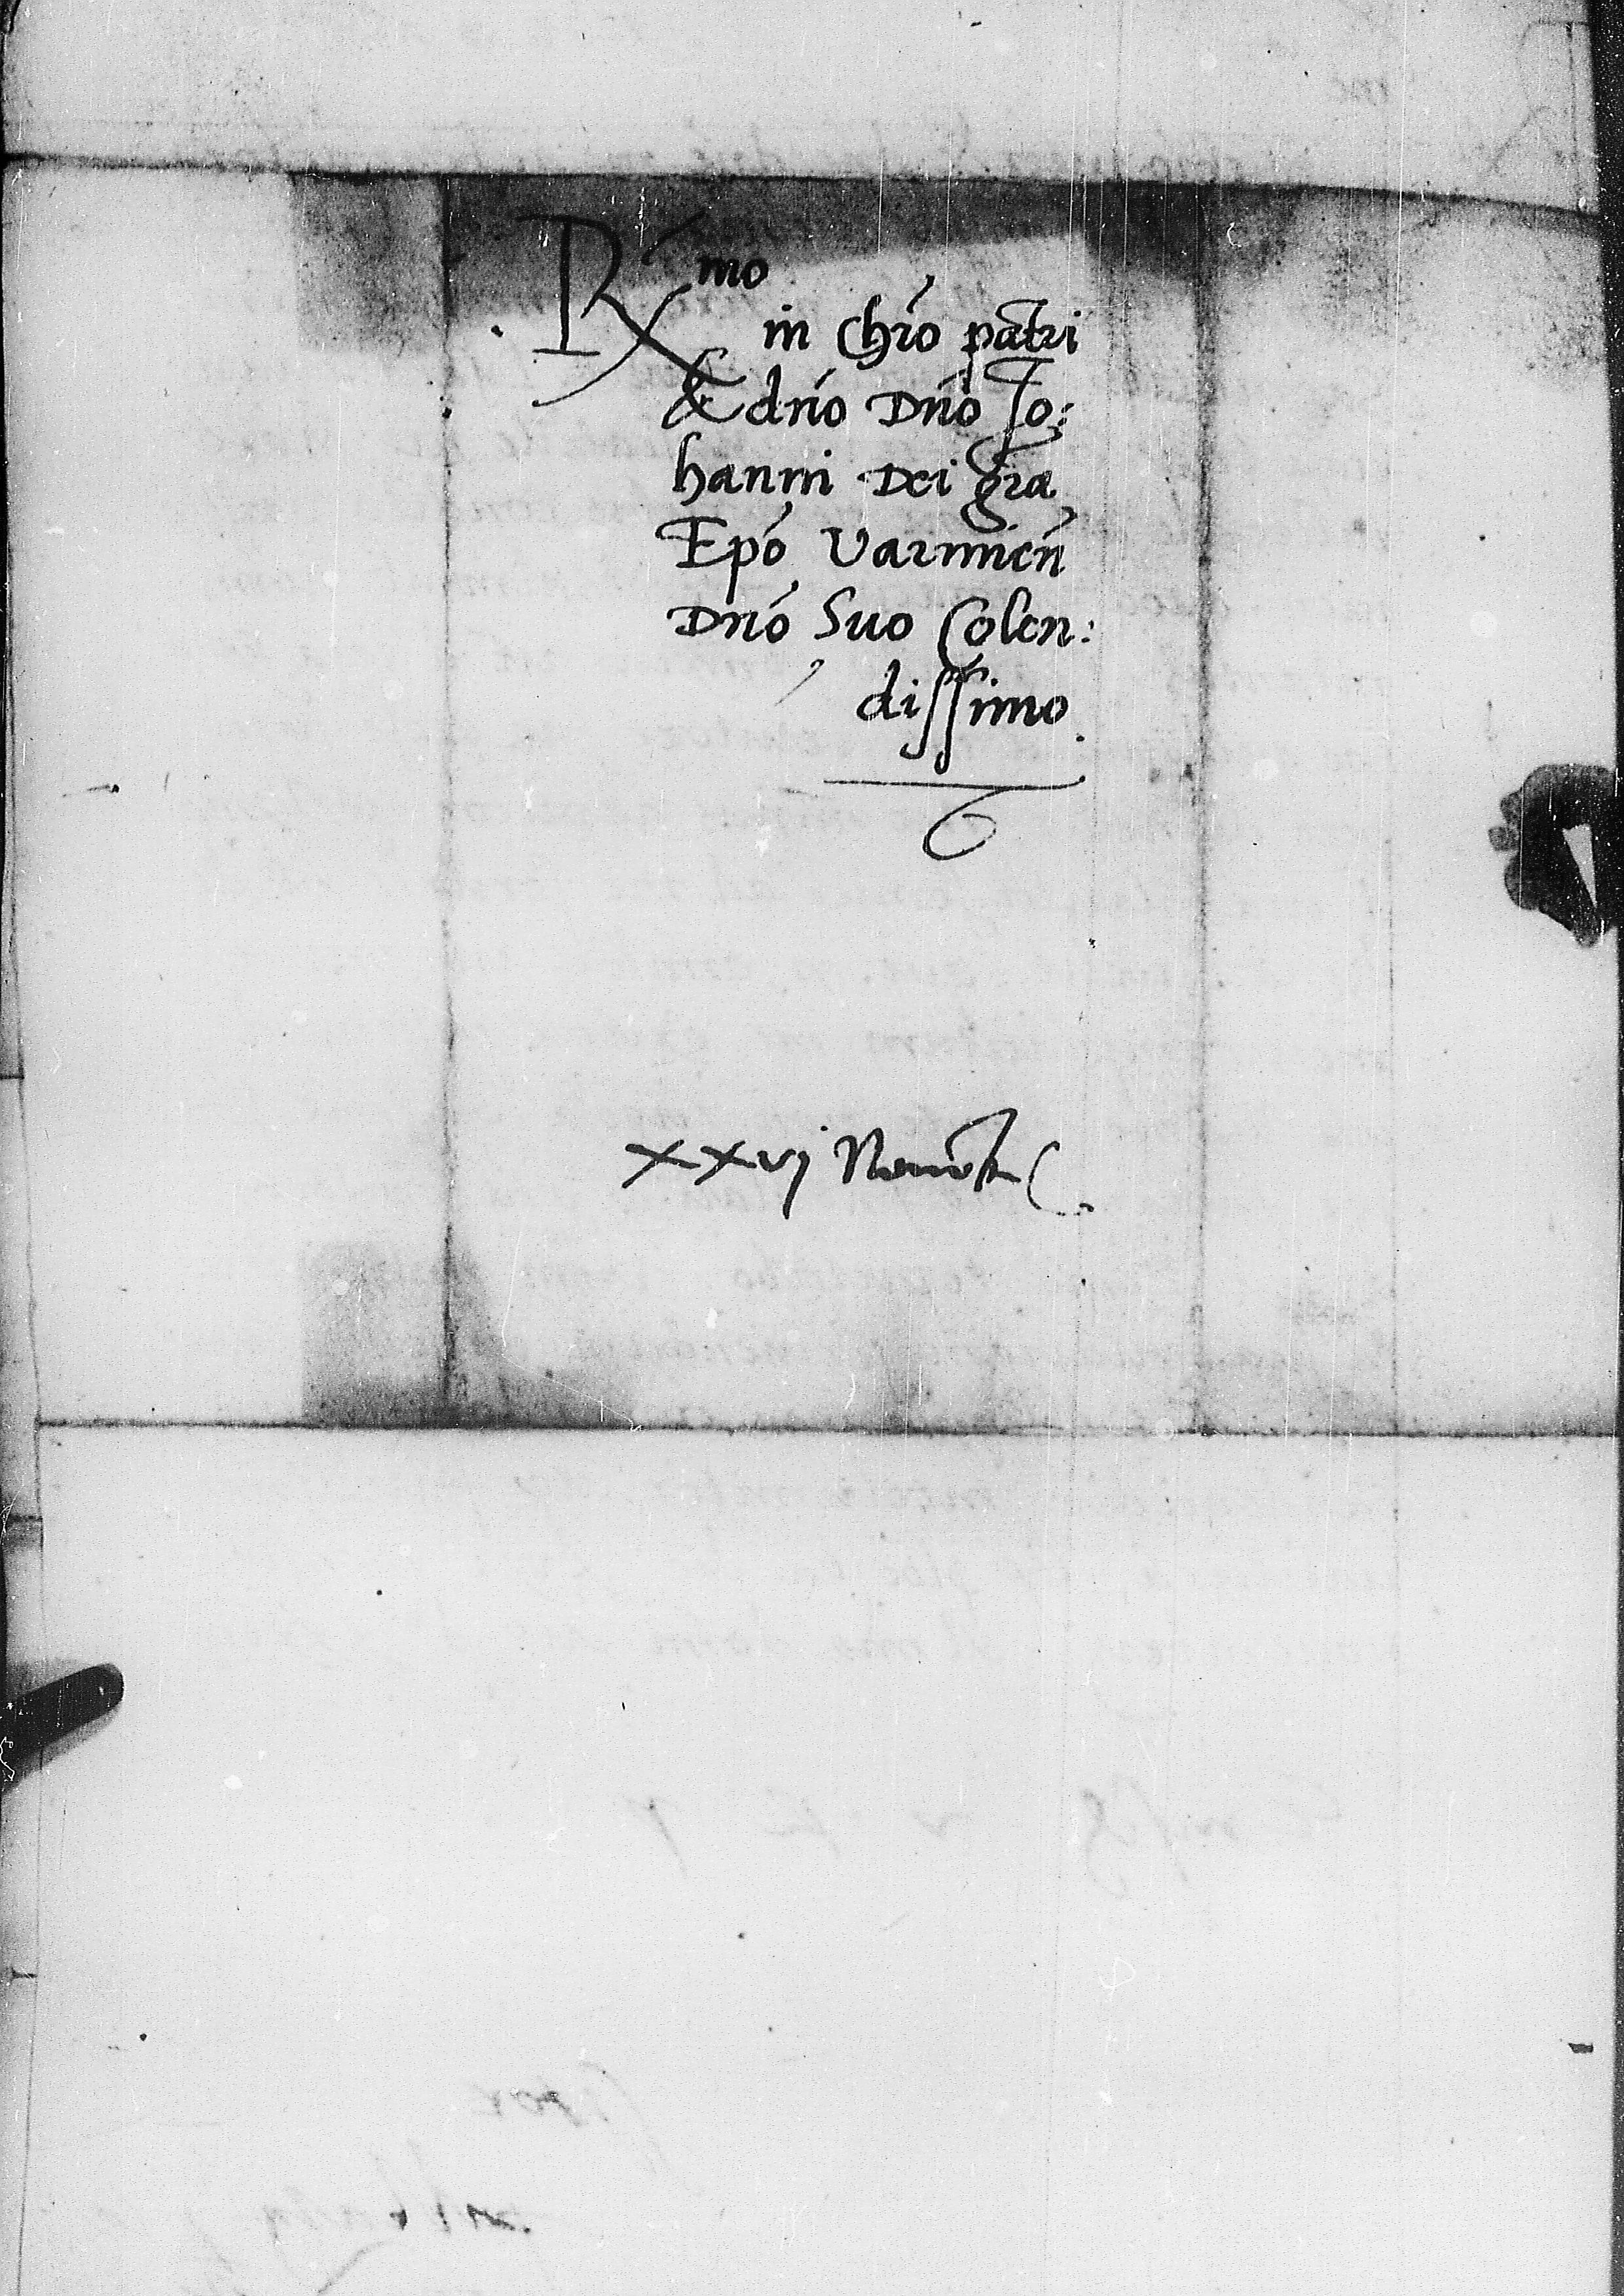 Rmo
in Chro patri
& dno Dno Jo:
hanni Dei gra
Epo Varmien
Dno Suo Colen:
dissimo.
xxvj Novembr